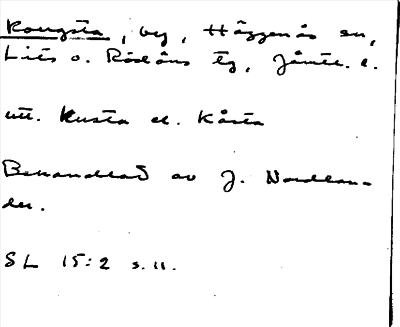 Kougsta, by, Häggenås sn,
Lits o. Rödöns tg, Jämtl. l.
utt. Kusta el. Kåsta
Behandlad av J. Nordlan-
der.
SL 15:2 s. 11.